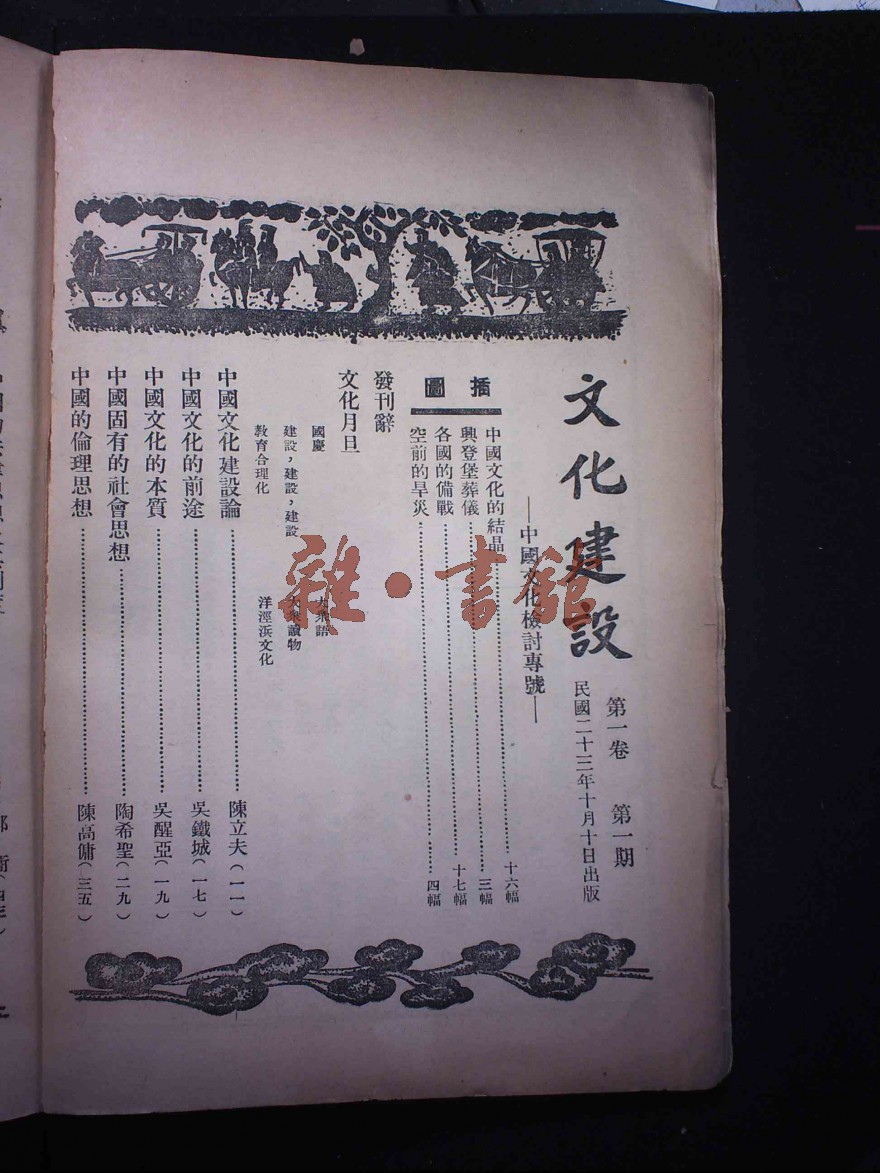 文化建設
第一卷　第一期
民國二十三年十月十日出版
—中國文化檢討專號—
插圖
中國文化的結晶……十六幅
興登堡葬儀……三幅
各國的備戰……十七幅
空前的旱災……四幅
發刊辭
文化月旦
國慶　大衆語
建設，建設，建設　大衆讀物
教育合理化　洋涇浜文化
中國文化建設論……陳立夫(一一)
中國文化的前途……吳鐵城(一七)
中國文化的本質……吳醒亞(一九)
中國固有的社會思想……陶希聖(二九)
中國的倫理思想……陳高傭(三五)
雜·書館